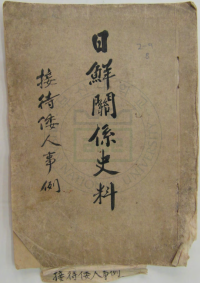 日鮮關係史料
接待倭人事例
接待倭人事例